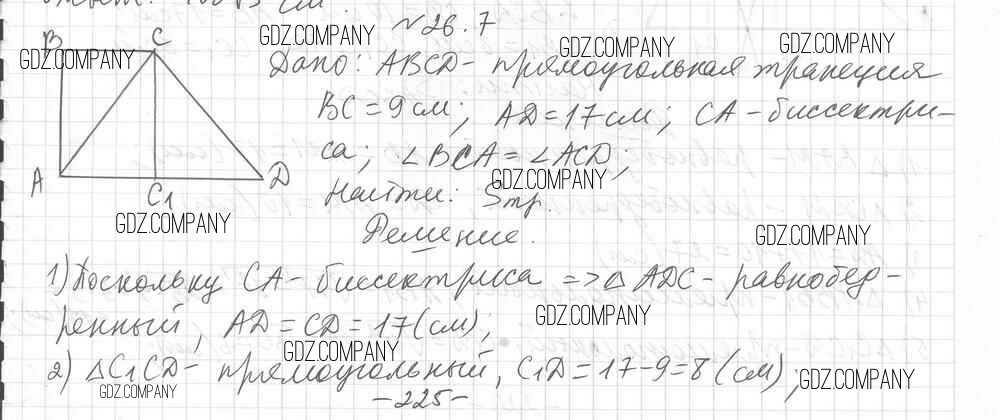 №26.7
B C
Дано: ABCD - прямоугольная трапеция
BC = 9 см; AD = 17 см; CA - биссектри-
са; ∠BCA = ∠ACD;
A C₁ D
Найти: Sтр.
Решение.
1) Поскольку CA - биссектриса => △ ADC - равнобед-
ренный, AD = CD = 17 (см);
2) △C₁CD - прямоугольный, C₁D = 17 - 9 = 8 (см);
-225-
GDZ.COMPANY
GDZ.COMPANY
GDZ.COMPANY
GDZ.COMPANY
GDZ.COMPANY
GDZ.COMPANY
GDZ.COMPANY
GDZ.COMPANY
GDZ.COMPANY
GDZ.COMPANY
GDZ.COMPANY